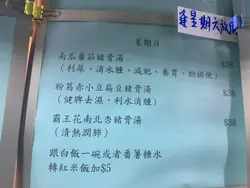 逢星期六休息
星期日
南瓜番茄豬骨湯
$38
(利尿、消水腫、減肥、養胃、助排便)
粉葛赤小豆扁豆豬骨湯
$38
(健脾去濕,利水消腫)
霸王花南北杏豬骨湯
$38
(清熱潤肺)
跟白飯一碗或者番薯糖水
轉紅米飯加$5